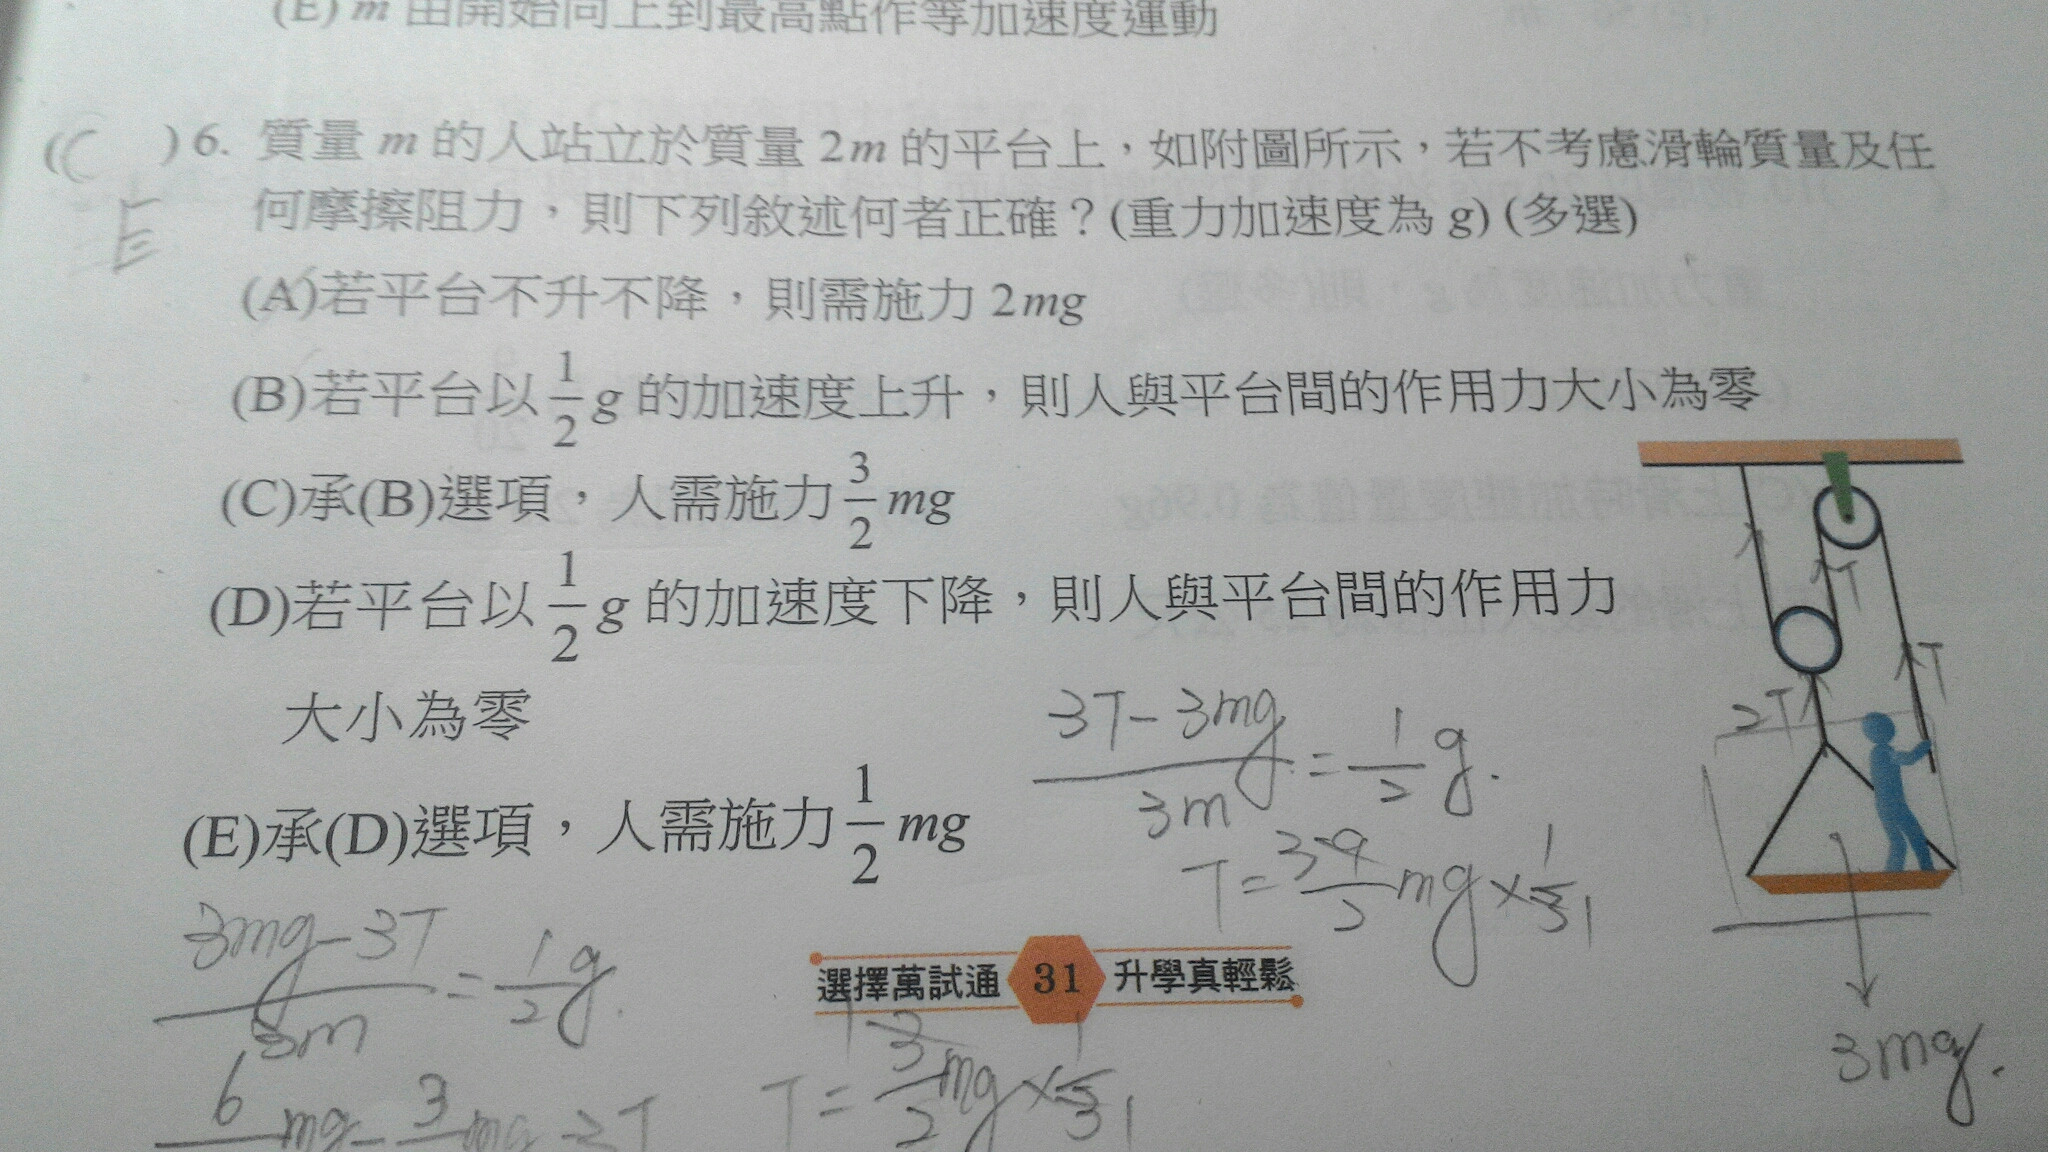 (E) m 由開始向上到最高點作等加速度運動
(C ) 6. 質量 m 的人站立於質量 2m 的平台上，如附圖所示，若不考慮滑輪質量及任
E
何摩擦阻力，則下列敘述何者正確？(重力加速度為 g) (多選)
(A)若平台不升不降，則需施力 2mg
(B)若平台以 1/2 g 的加速度上升，則人與平台間的作用力大小為零
(C)承(B)選項，人需施力 3/2 mg
(D)若平台以 1/2 g 的加速度下降，則人與平台間的作用力
大小為零
(E)承(D)選項，人需施力 1/2 mg
T
T
2T
3T-3mg/3m = 1/2 g.
3mg-3T/3m = 1/2 g.
3mg.
選擇萬試通 31 升學真輕鬆
T= 3/2 mg× 1/3 1